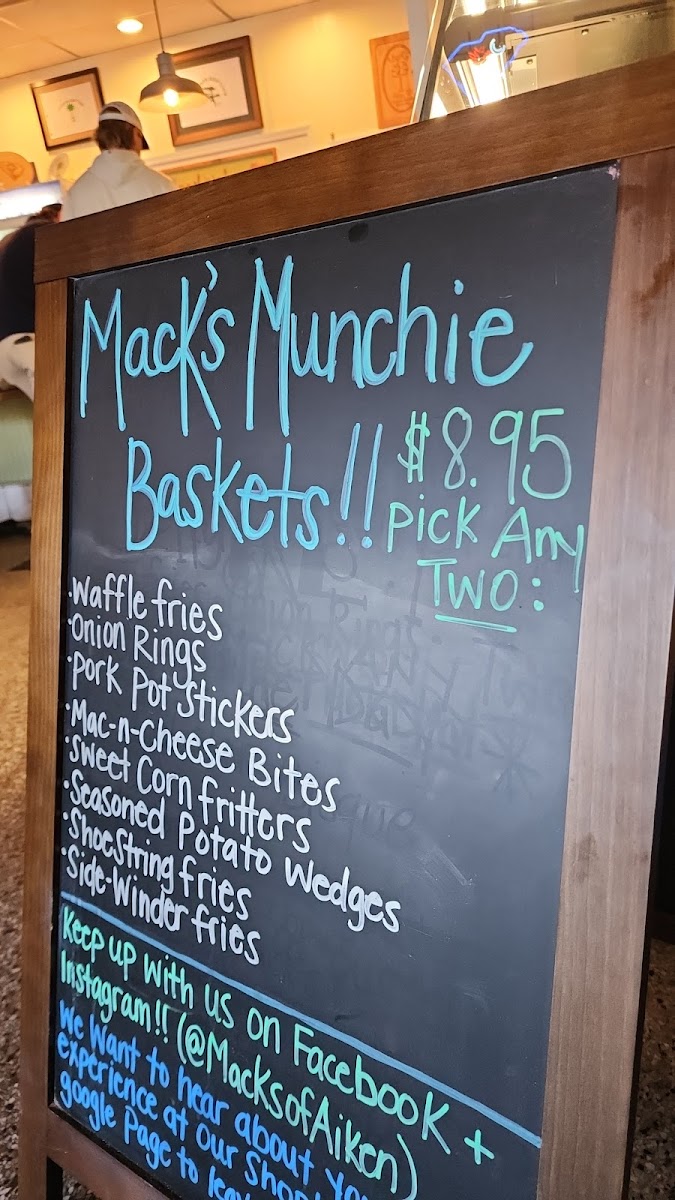 Mack's Munchie
Baskets!!
$8.95
Pick Any
Two:
·Waffle fries
·Onion Rings
·Pork Pot Stickers
·Mac-n-Cheese Bites
·Sweet Corn Fritters
·Seasoned Potato Wedges
·Shoestring fries
·Side-Winder fries
Keep up with us on Facebook +
Instagram!! (@MacksofAiken)
We want to hear about
experience at our shop!
google Page to